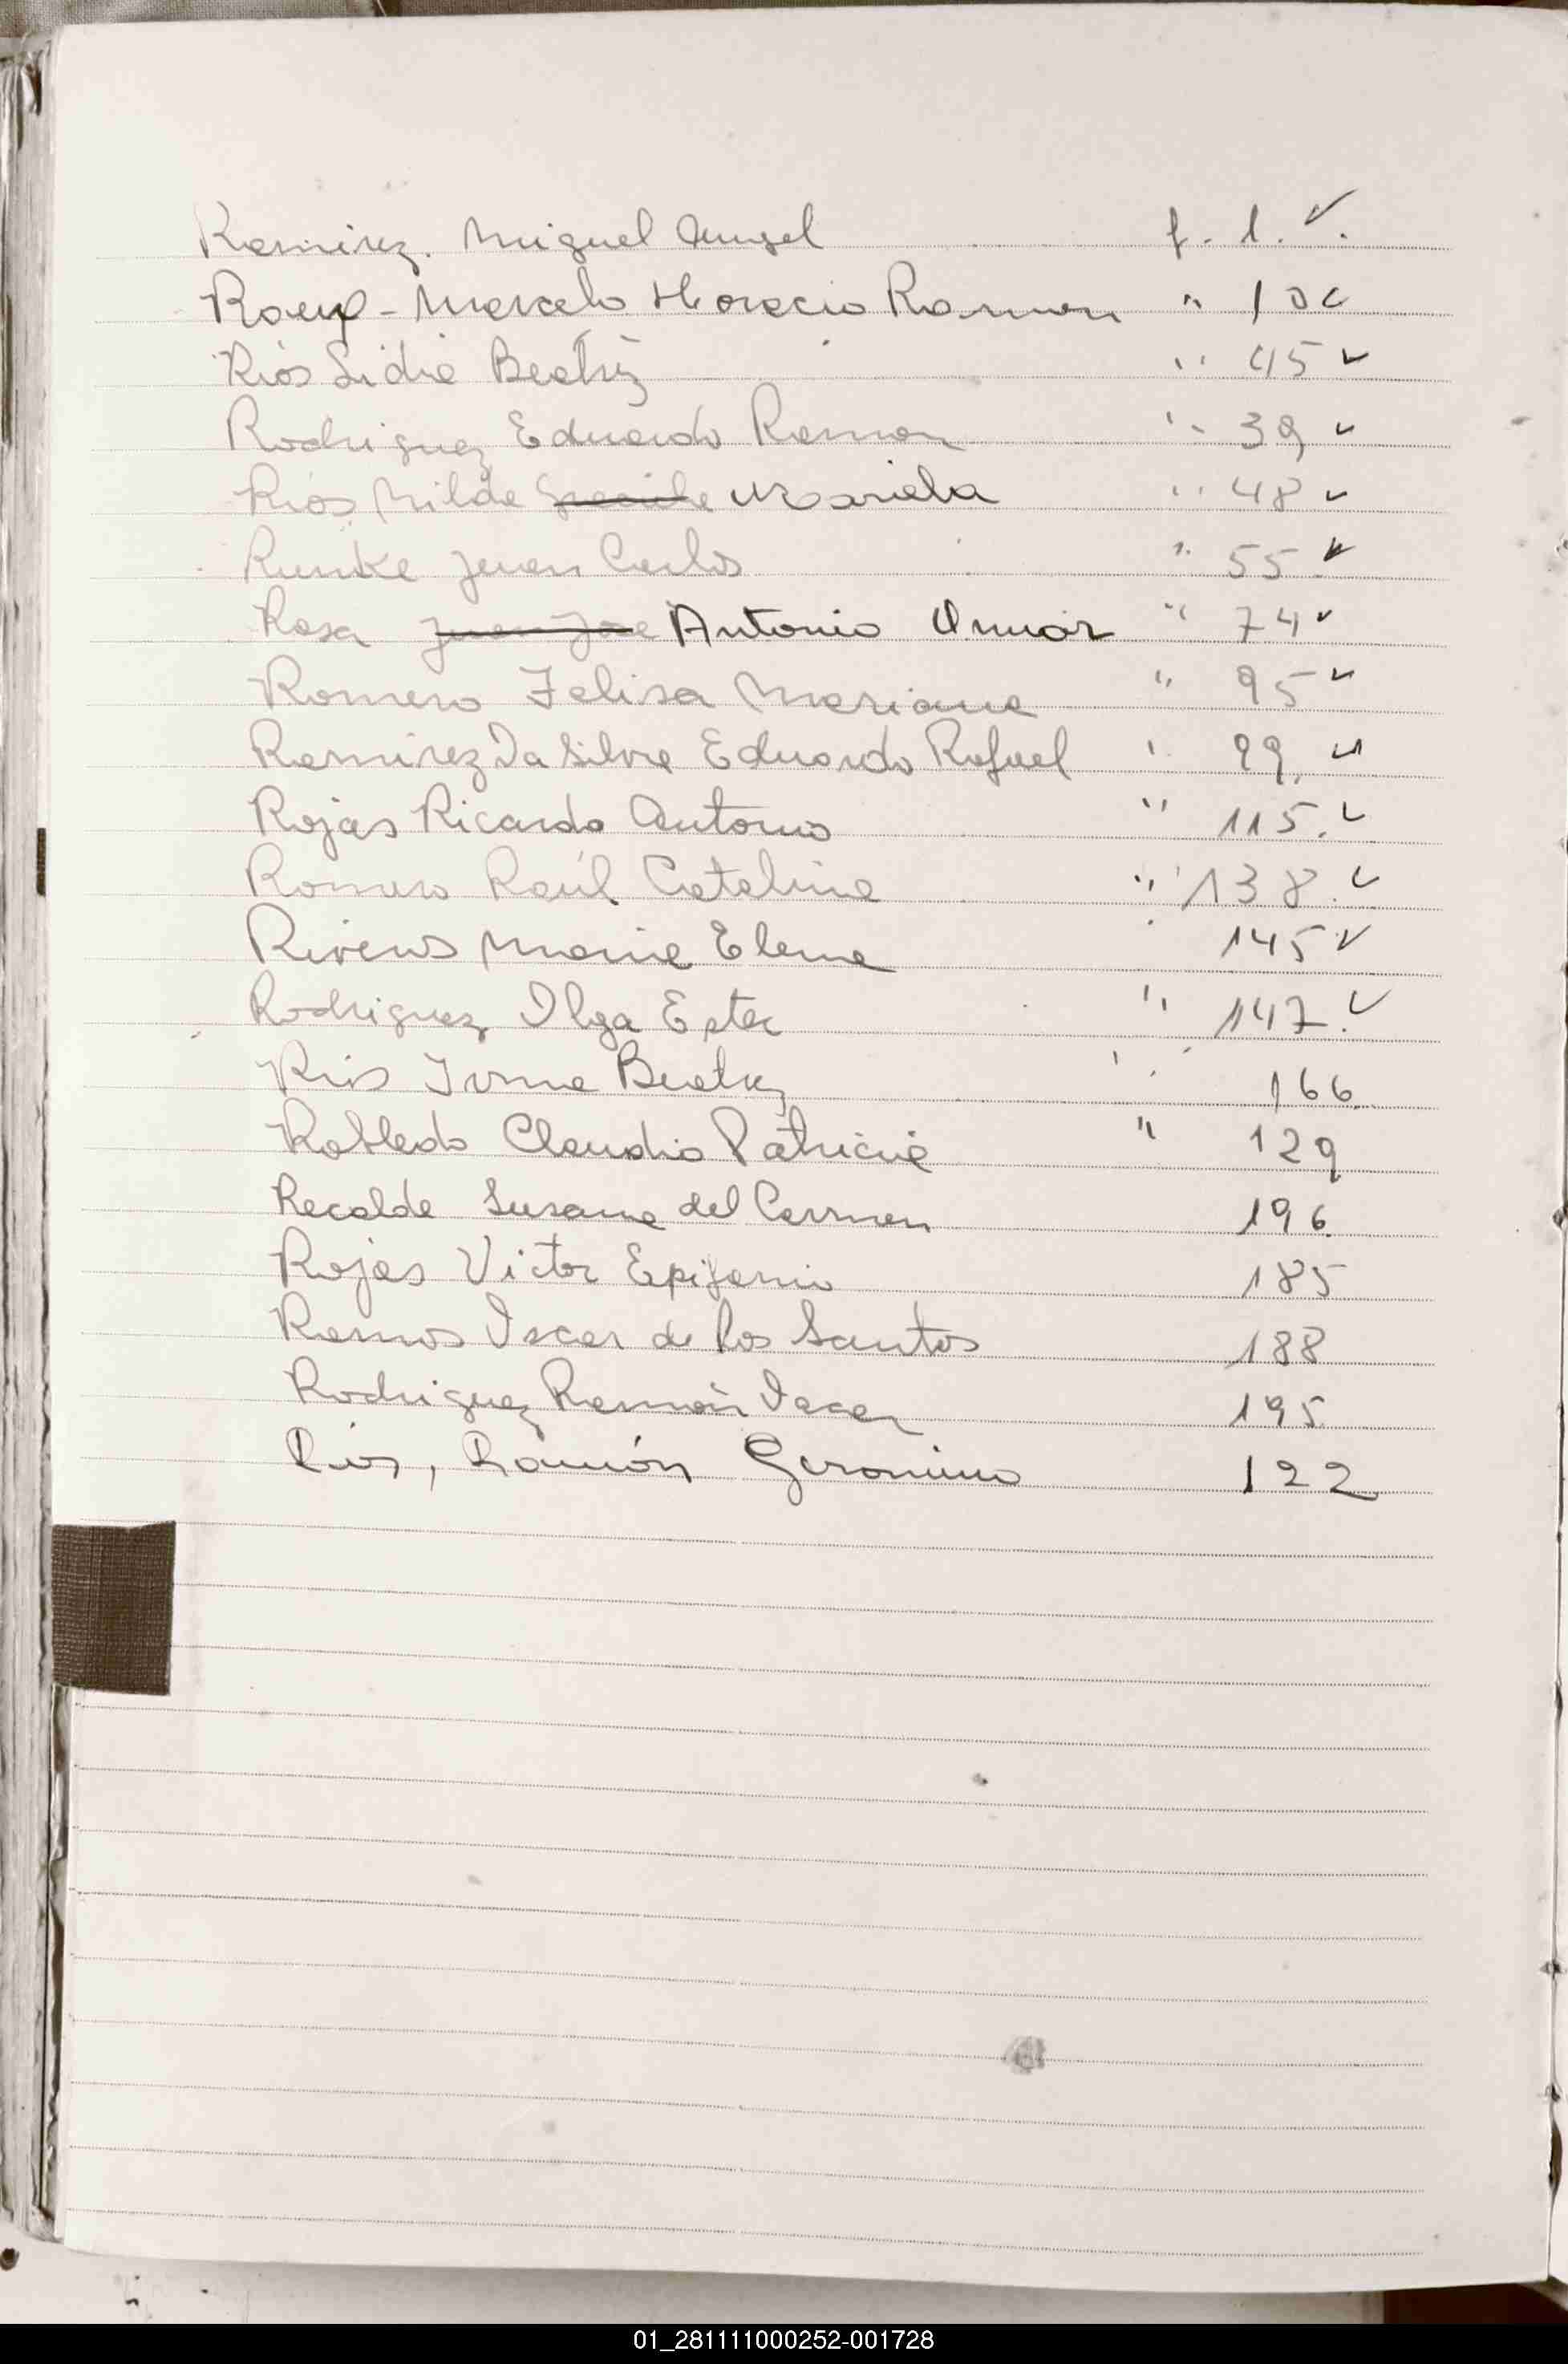 Ramirez. Miguel Angel f. 1. ✓.
Marcelo Horacio Ramon " 10 ✓
Ríos Lidia Beatriz " 45 ✓
Rodriguez Eduardo Ramon " 39 ✓
Ríos Milde Mariela " 48 ✓
Runke Juan Carlos " 55 ✓
Rosa Juan Jose Antonio Omar " 74 ✓
Romero Felisa Mariana " 95 ✓
Ramirez Da Silva Eduardo Rafael " 99. ✓
Rojas Ricardo Antonio " 115. ✓
Romero Raúl Catalino " 138. ✓
Maria Elena 145 ✓
Rodriguez Ilga Ester " 147. ✓
Ríos Ivone Beatriz " 166
Robledo Claudia Patricia " 129
Recalde Susana del Carmen 196
Rojas Victor Epifanio 185
Ramos Oscar de los Santos 188
Rodriguez Ramón Oscar 195
Ríos, Ramón Geronimo 122
01_281111000252-001728